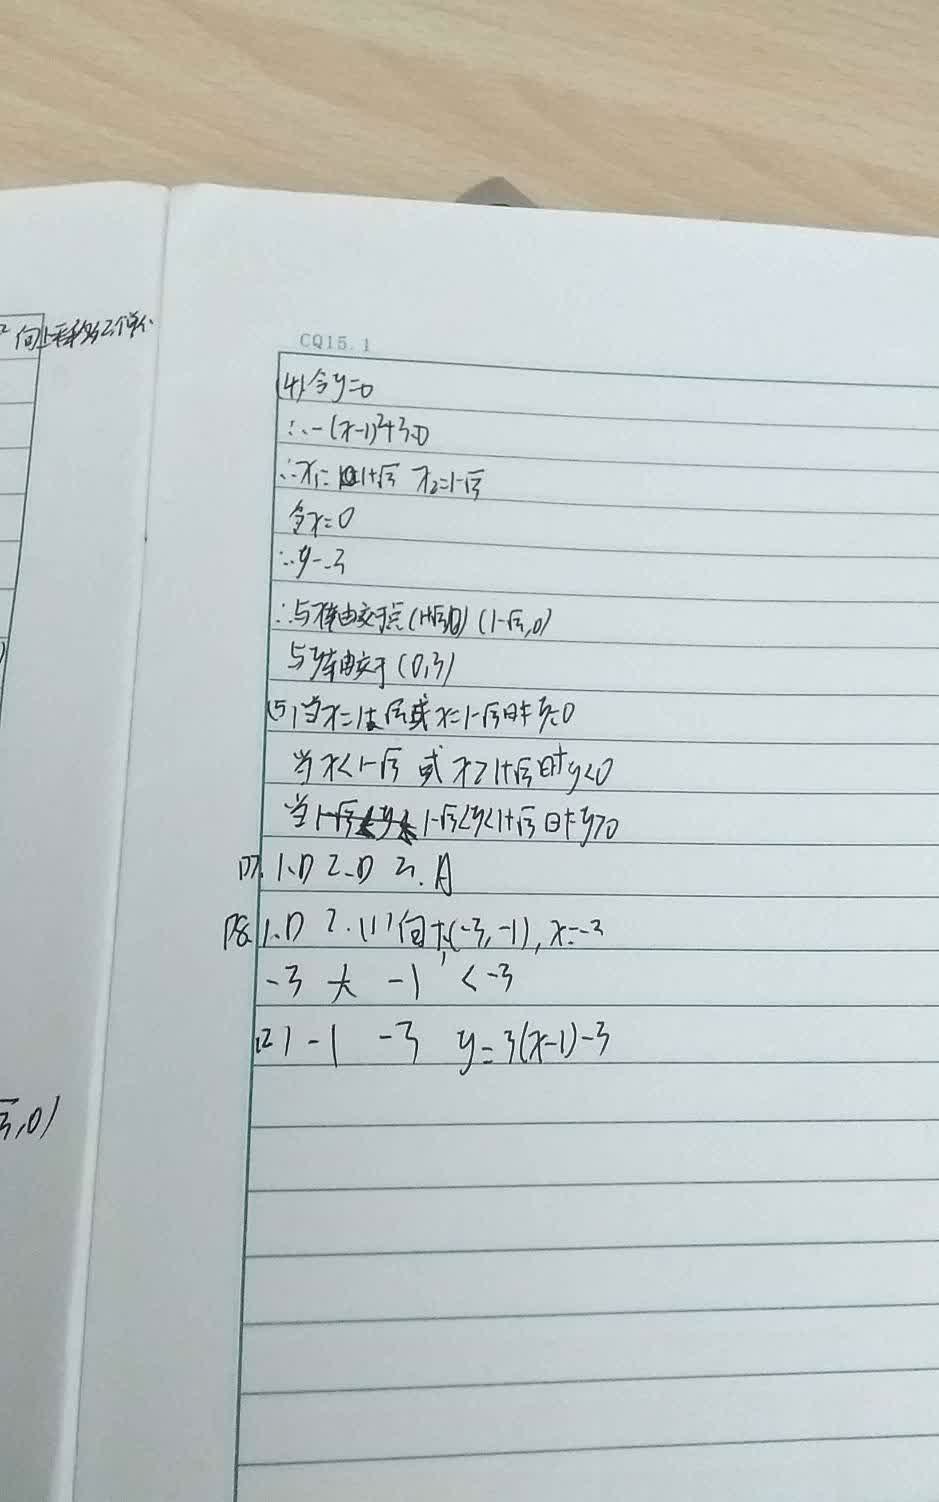 向上平移2个单个
CQ15.1
(4)令y=0
∴-(x-1)²+3=0
∴x₁=1+√3 x₂=1-√3
令x=0
∴y=3
∴与x轴交于点(1+√3,0) (1-√3,0)
与y轴交于(0,3)
(5)当x=1+√3或x=1-√3时y=0
当x<1-√3 或x>1+√3时y<0
当1-√3<y<1+√3时y>0
P7. 1.D 2.D 3.A
P8. 1.D 2.(1)向下,(-3,-1),x=-3
-3 大 -1 <-3
(2) -1 -3 y=3(x-1)-3
√3,0)